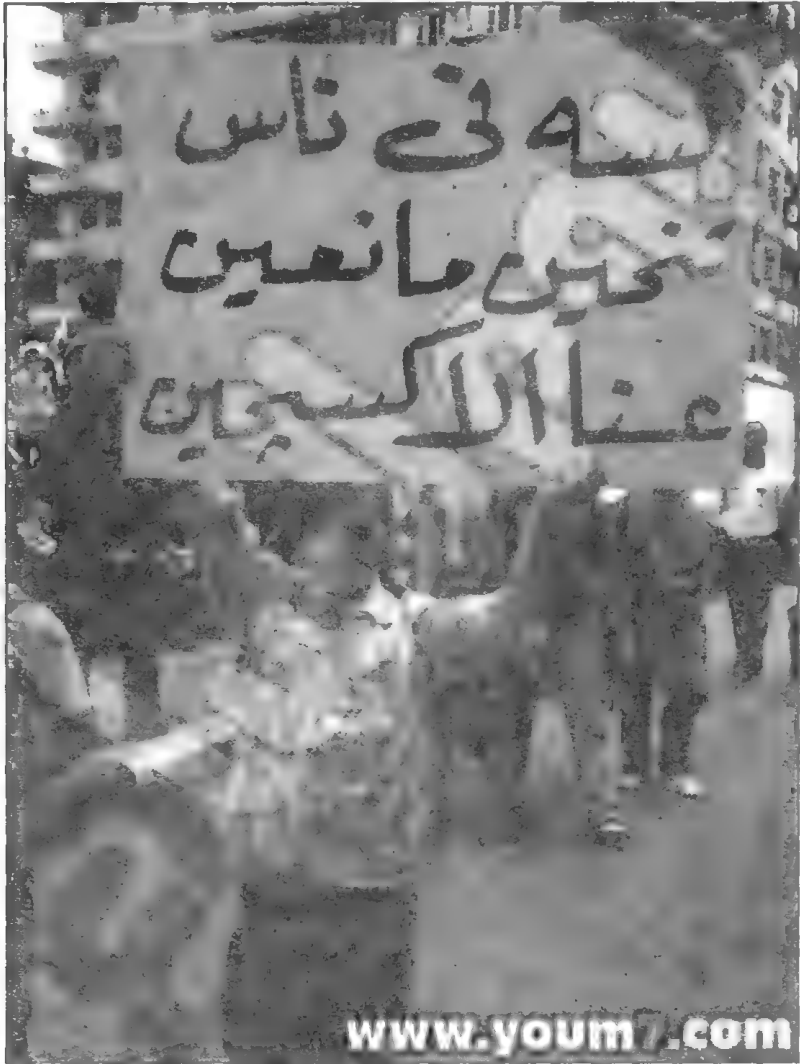 لسه فى ناس
تخين مانعين
عنا الاكسجين
www.youm7.com